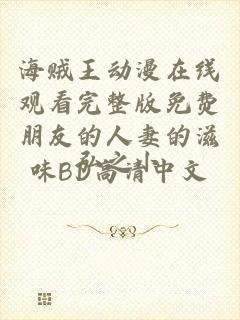 海贼王动漫在线
观看完整版免费
朋友的人妻的滋
味BD高清中文